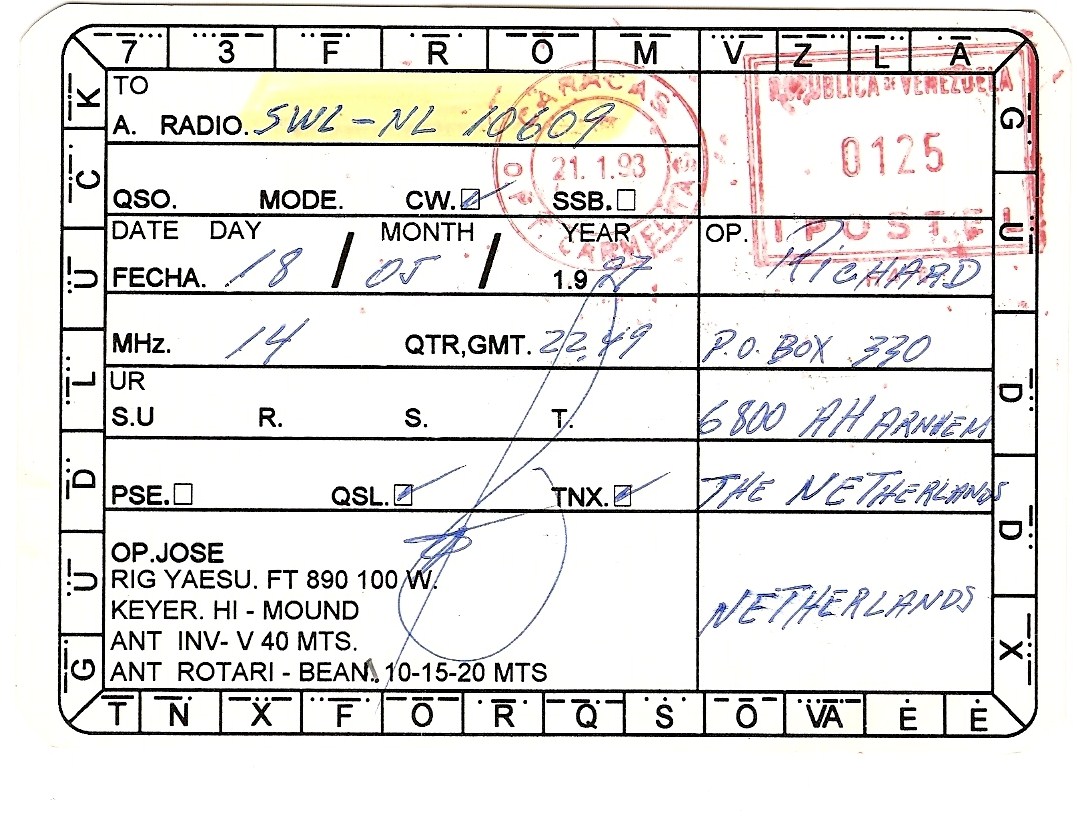 7 3 F R O M V Z L A
G U D D X
TNX FOR QSO VA E E
GUD LUCK
TO
A. RADIO. SWL-NL 10609
QSO. MODE. CW. SSB.
DATE DAY MONTH YEAR
FECHA. 18 / 05 / 1.9 97
MHz. 14 QTR,GMT. 22.49
UR
S.U R. S. T.
PSE. QSL. TNX.
OP.JOSE
RIG YAESU. FT 890 100 W.
KEYER. HI - MOUND
ANT INV- V 40 MTS.
ANT ROTARI - BEAN. 10-15-20 MTS
OP. RICHARD
P.O. BOX 330
6800 AH ARNHEM
THE NETHERLANDS
NETHERLANDS
CARACAS
21.1.93
CARMELITAS
REPUBLICA DE VENEZUELA
0125
IPOSTEL